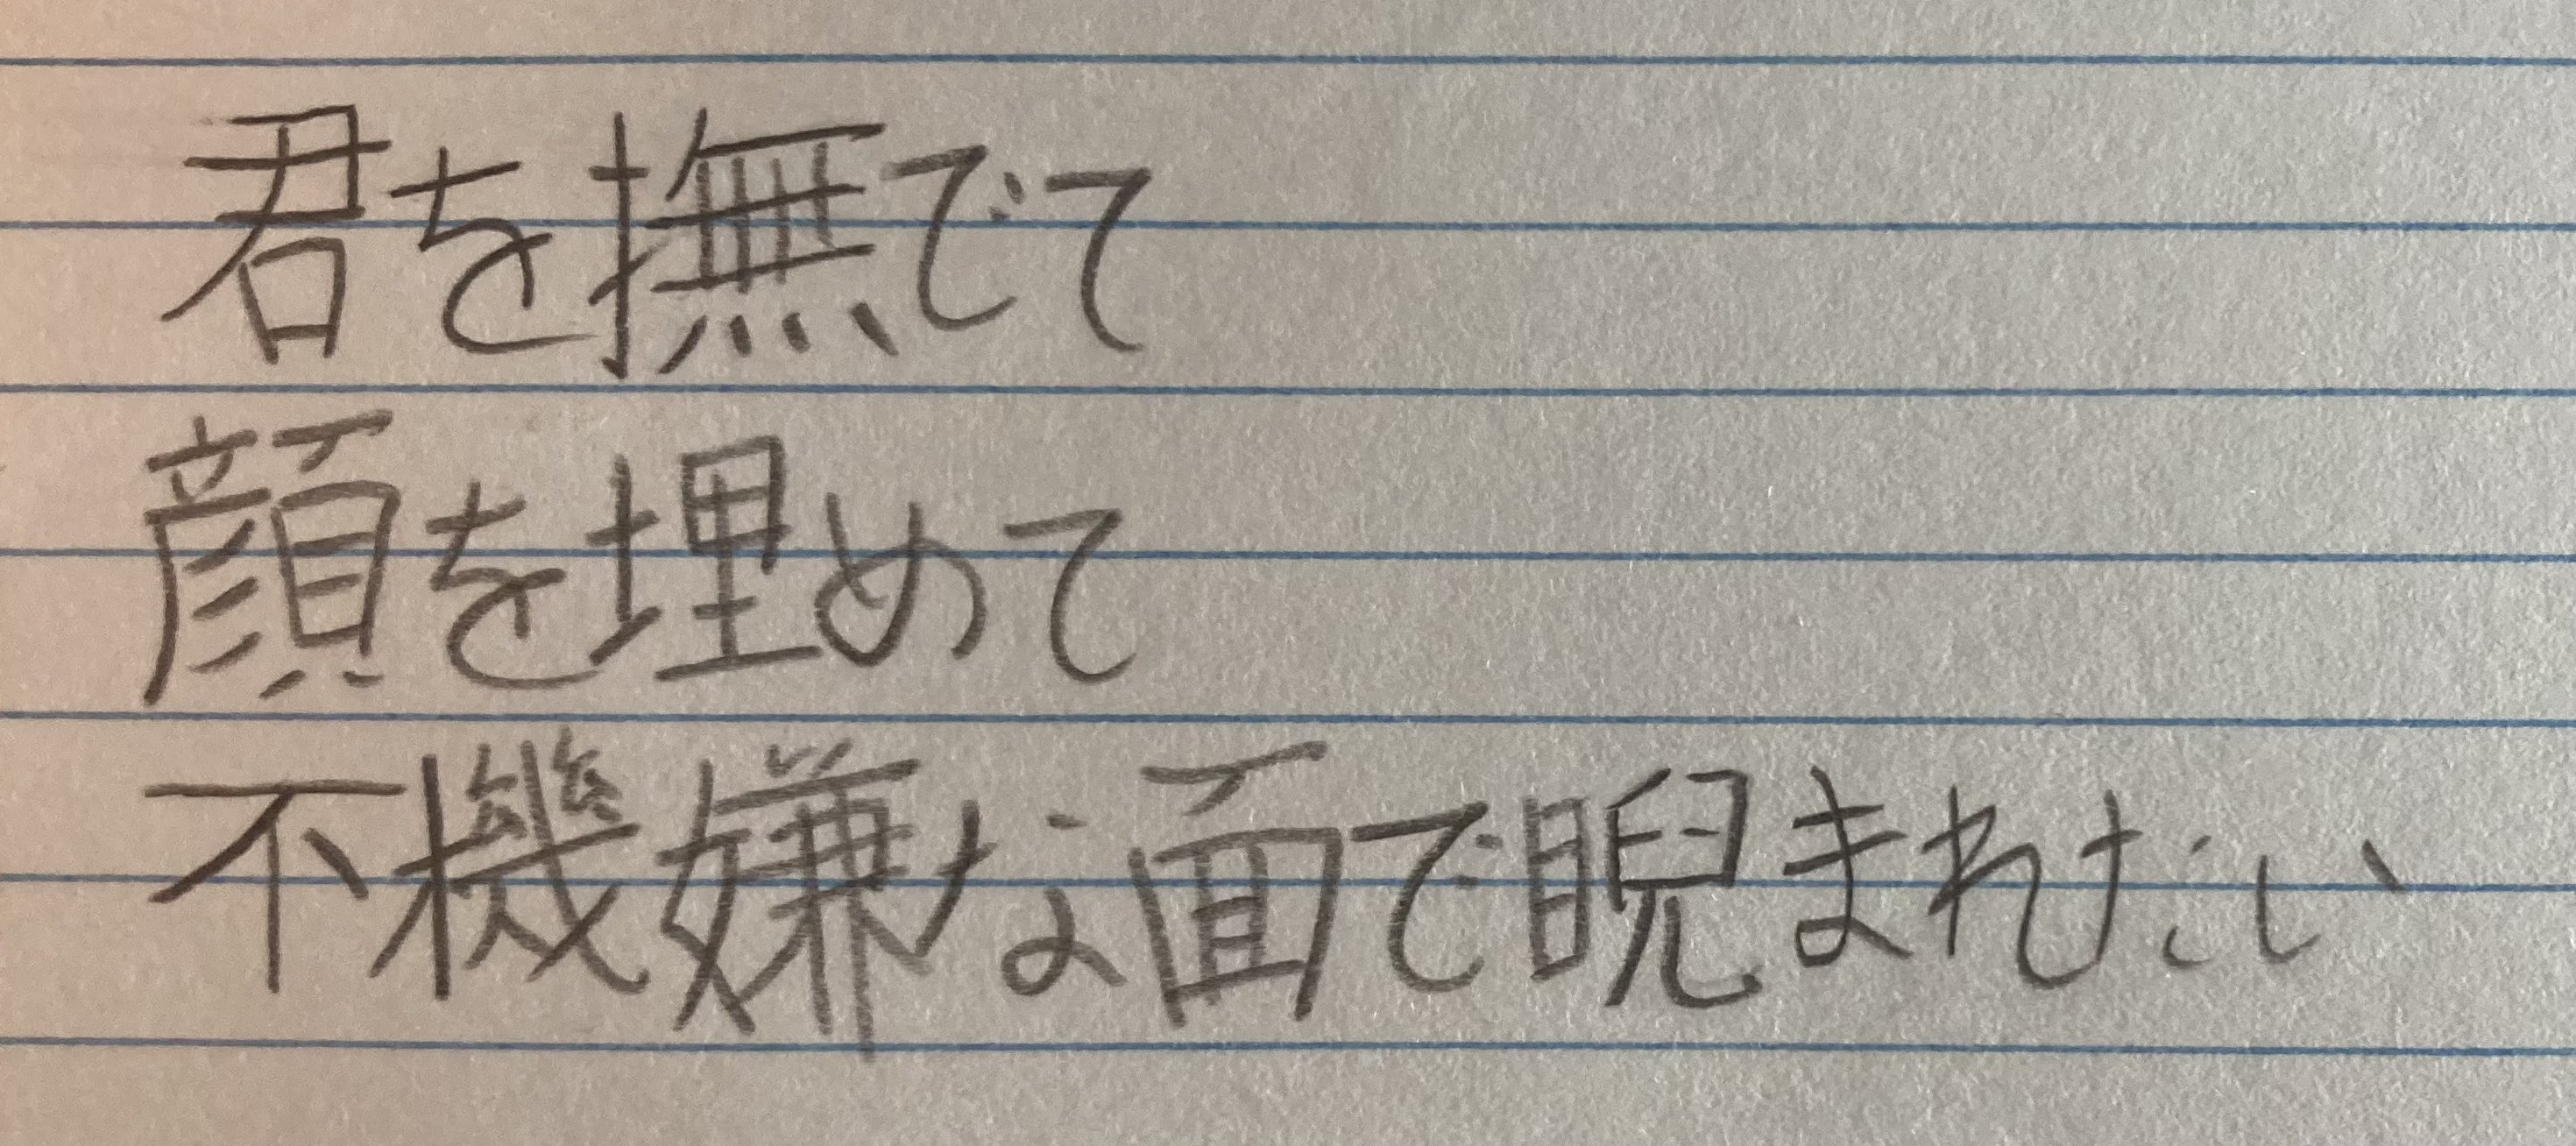 君を撫でて
顔を埋めて
不機嫌な面で睨まれたい